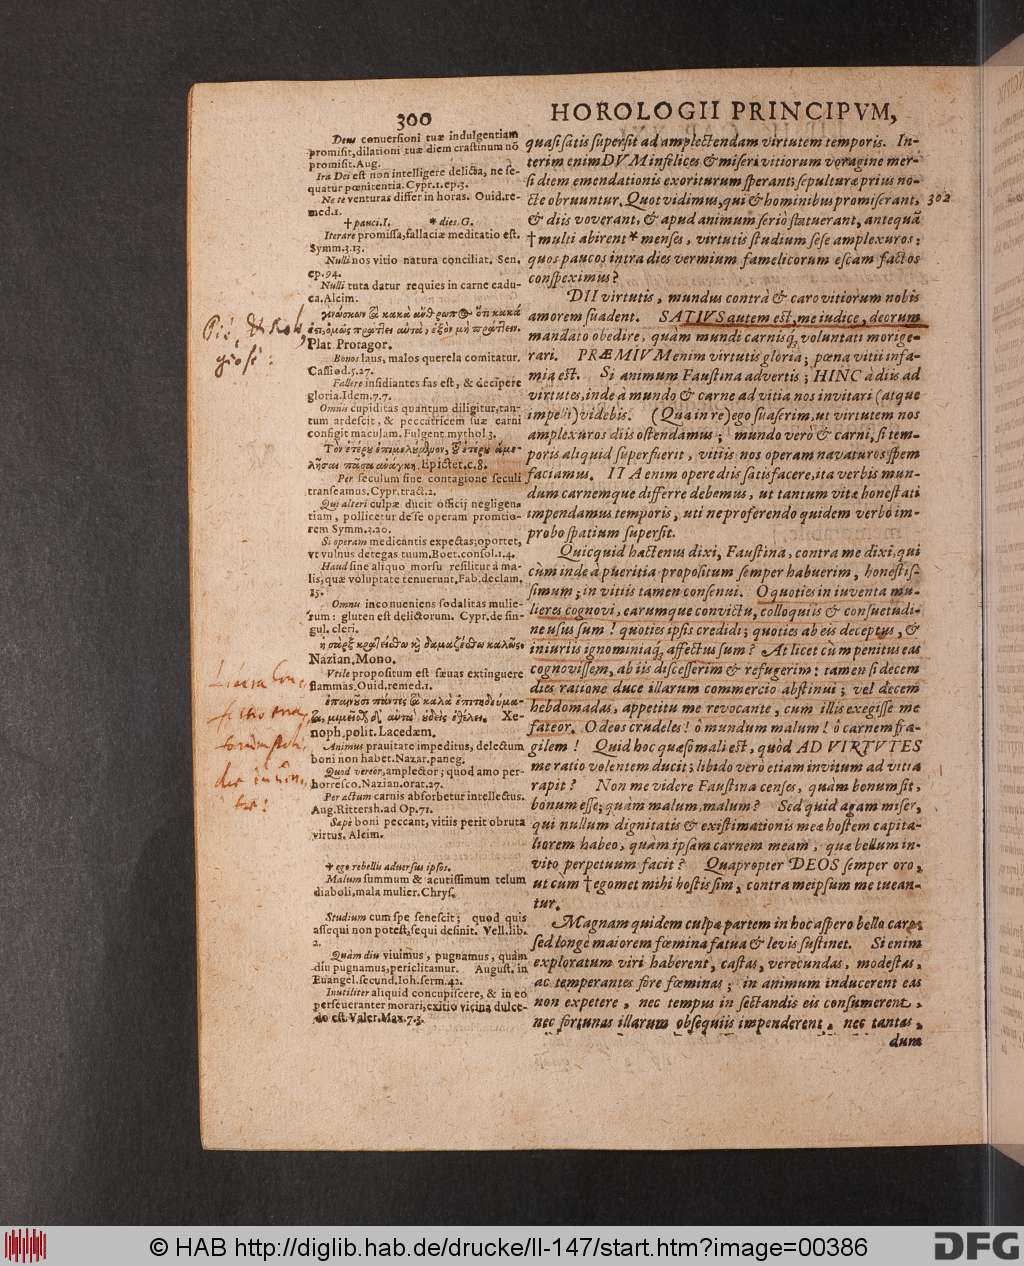 300
HOROLOGII PRINCIPVM,
Deus conuersioni tuæ indulgentiam
promisit, dilationi tuæ diem crastinum nō
promisit. Aug.
Ira Dei est non intelligere delicta, ne se-
quatur pœnitentia. Cypr. 1. ep. 3.
Ne te venturas differ in horas. Ouid. re-
med. 1.
† pauci. I. * dies. G.
Iterare promissa, fallaciæ meditatio est.
Symm. 3. 13.
Nulli nos vitio natura conciliat. Sen.
ep. 94.
Nulli tuta datur requies in carne cadu-
ca. Alcim.
Plat. Protagor.
Bonos laus, malos querela comitatur.
Cassiod. 5. 27.
Fallere insidiantes fas est, & decipere
gloria. Idem. 7. 7.
Omnis cupiditas quantum diligitur, tan-
tum ardescit, & peccatricem suæ carni
configit maculam. Fulgent. mythol 3.
Epictet. c. 8.
Per seculum sine contagione seculi
transeamus. Cypr. tract. 2.
Qui alteri culpæ ducit officij negligen-
tiam, pollicetur de se operam promtio-
rem Symm. 3. 20.
Si operam medicantis expectas; oportet,
vt vulnus detegas tuum. Boet. consol. 1. 4.
Haud sine aliquo morsu resilitur à ma-
lis, quæ voluptate tenuerunt. Fab. declam.
15.
Omnis inconueniens sodalitas mulie-
rum: gluten est delictorum. Cypr. de sin-
gul. cleri.
Nazian. Mono.
Vtile propositum est sæuas extinguere
flammas. Ouid. remed. 1.
Xe-
noph. polit. Lacedæm.
Animus prauitate impeditus, delectum
boni non habet. Nazar. paneg.
Quod vereor, amplector; quod amo per-
horresco. Nazian. orat. 27.
Per actum carnis absorbetur intellectus.
Aug. Rittersh. ad Op. 71.
Sæpè boni peccant, vitiis perit obruta
virtus. Alcim.
† ego rebellis aduersus ipsos.
Malum summum & acutissimum telum
diaboli, mala mulier. Chrys.
Studium cum spe senescit; quod quis
assequi non potest, sequi desinit. Vell. lib.
2.
Quàm diu viuimus, pugnamus, quàm
diu pugnamus, periclitamur. August. in
Euangel. secund. Ioh. serm. 42.
Inutiliter aliquid concupiscere, & in eo
perseueranter morari, exitio vicina dulce-
do est. Valer. Max. 7. 3.
quasi satis supersit ad amplectendam virtutem temporis. In-
terim enim DVM infelices & miseri vitiorum voragine mer-
si diem emendationis exoriturum sperant; sepulturæ prius no-
cte obruuntur. Quot vidimus, qui & hominibus promiserant, 302
& diis voverant, & apud animum seriò statuerant, antequā
† multi abirent * menses, virtutis studium sese amplexuros:
quos paucos intra dies vermium famelicorum escam factos
conspeximus?
DII virtutis, mundus contrà & caro vitiorum nobis
amorem suadent. SATIVS autem est, me iudice, deorum
mandato obedire, quàm mundi carnisq́, voluntati morige-
rari. PRÆMIVM enim virtutis gloria; pœna vitii infa-
mia est. Si animum Faustina advertis; HINC à diis ad
virtutes, inde à mundo & carne ad vitia nos invitari (atque
impelli) videbis. (Qua in re) ego suaserim, ut virtutem nos
amplexuros diis ostendamus; mundo verò & carni, si tem-
poris aliquid superfuerit, vitiis nos operam navaturos spem
faciamus. ITA enim opere diis satisfacere, ita verbis mun-
dum carnemque differre debemus, ut tantum vitæ honestati
impendamus temporis, uti ne proferendo quidem verbo im-
probo spatium supersit.
Quicquid hactenus dixi, Faustina, contra me dixi, qui
cùm inde à pueritia propositum semper habuerim, honestis-
simum; in vitiis tamen consenui. O quoties in iuventa mu-
lieres cognovi, earumque convictu, colloquiis & consuetudi-
ne usus sum! quoties ipsis credidi; quoties ab eis deceptus, &
iniuriis ignominiaq́, affectus sum? At licet cùm penitus eas
cognovissem, ab iis discesserim & refugerim: tamen si decem
dies ratione duce illarum commercio abstinui; vel decem
hebdomadas, appetitu me revocante, cum illis exegisse me
fateor. O deos crudeles! ô mundum malum! ô carnem fra-
gilem! Quid hoc quæso mali est, quòd AD VIRTVTES
me ratio volentem ducit; libido verò etiam invitum ad vitia
rapit? Non me videre Faustina censes, quàm bonum sit,
bonum esse; quàm malum, malum? Sed quid agam miser,
qui nullum dignitatis & existimationis meæ hostem capita-
liorem habeo, quàm ipsam carnem meam, quæ bellum in-
vito perpetuum facit? Quapropter DEOS semper oro,
ut cùm † egomet mihi hostis sim, contra meipsum me tuean-
tur.
Magnam quidem culpæ partem in hoc aspero bello caro,
sed longè maiorem fœmina fatua & levis sustinet. Si enim
exploratum viri haberent, castas, verecundas, modestas,
ac temperantes fore fœminas; in animum inducerent eas
non expetere, nec tempus in sectandis eis consumerent,
nec fortunas illarum obsequiis impenderent, nec tantas,
dum
© HAB http://diglib.hab.de/drucke/ll-147/start.htm?image=00386
DFG